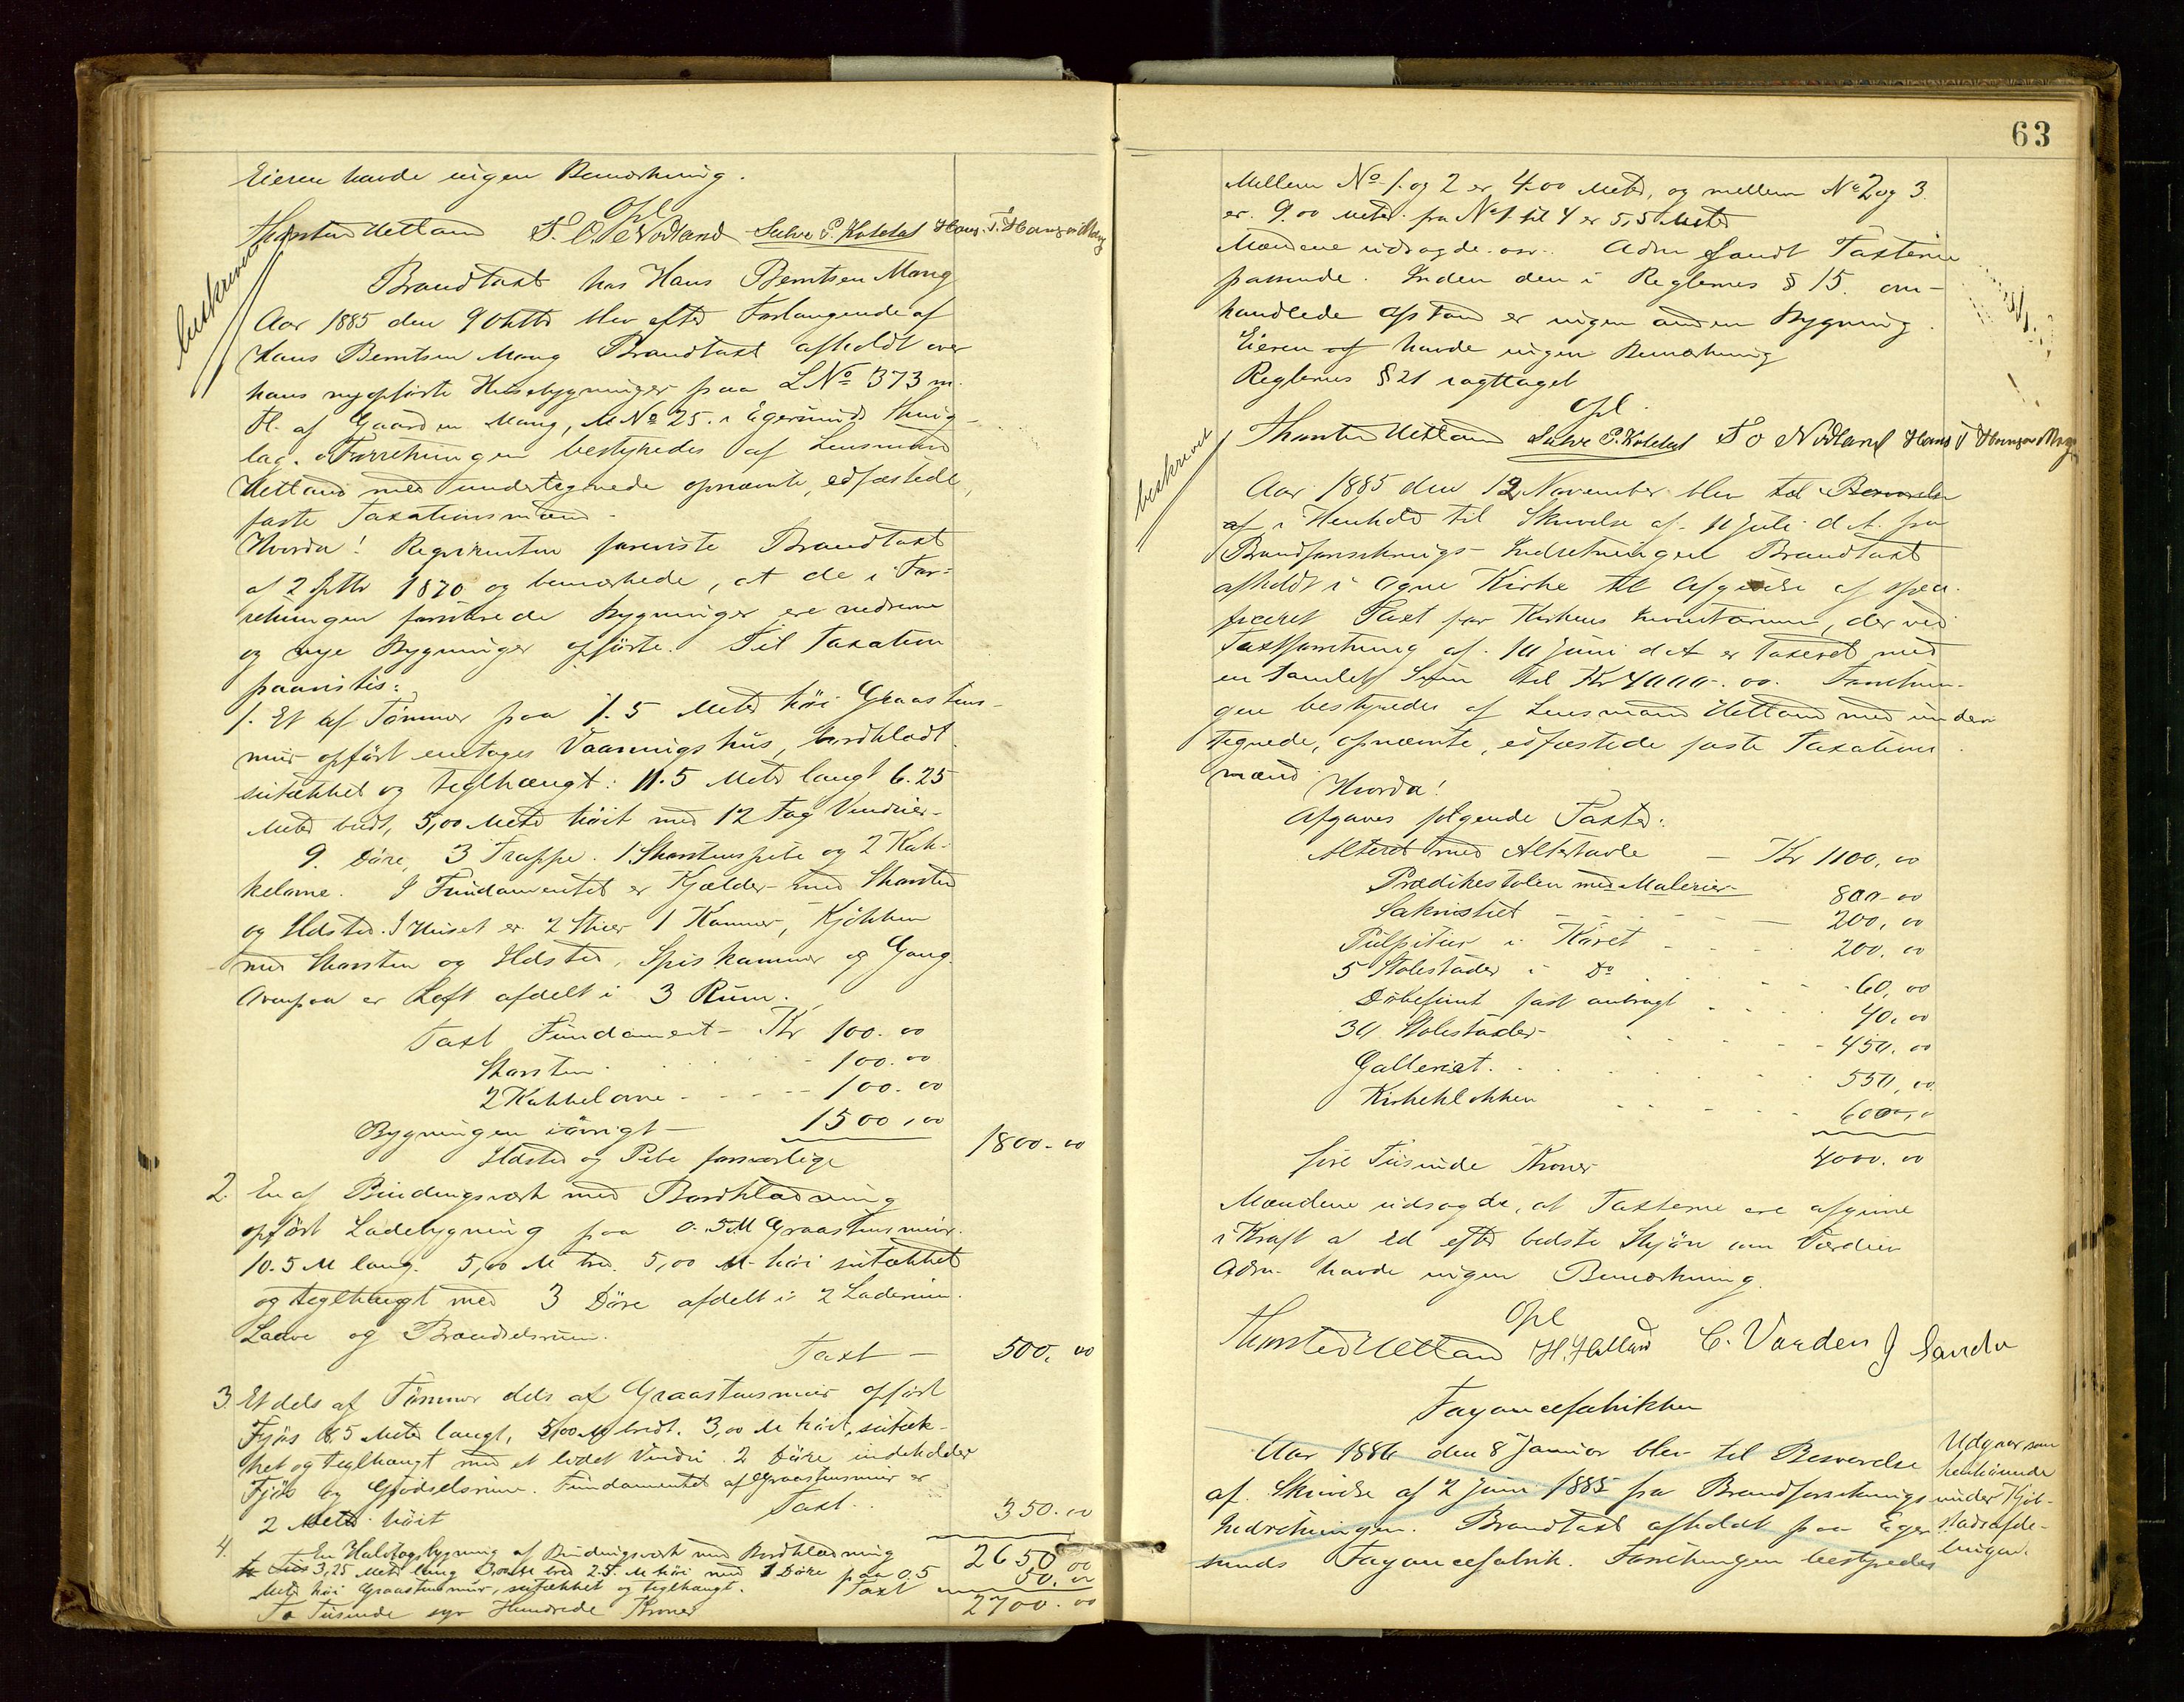 Eieren havde ingen Bemærkning.
Opl
Thorsten Uetland S. O. Nodland Salve E. Koldal Hans T. Hansen Mong
beskrevet
Brandtaxt hos Hans Berntsen Mong
Aar 1885 den 9 Oktbr blev efter Forlangende af
Hans Berntsen Mong Brandtaxt afholdt over
hans nyopførte Husebygninger paa LNo 373 m.
Fl. af Gaarden Mong, MNo 25. i Egersunds Thing-
lag. Forretningen bestyredes af Lensmand
Uetland med undertegnede opnævnte, edfæstede,
faste Taxationsmænd.
Hvorda! Rekvirenten foreviste Brandtaxt
af 2 Septbr 1870 og bemærkede, at de i For-
retningen forsikrede Bygninger ere nedrevne
og nye Bygninger opførte. Til Taxation
paavistes:
1. Et af Tømmer paa 1.5 Meter høi Graastens-
mur opført enetages Vaaningshus, bordklædt
sutækket og teglhængt: 11.5 Meter langt 6.25
Meter bredt, 5,00 Meter høit med 12 Fag Vinduer-
9. Døre, 3 Trappe. 1 Skorstenspibe og 2 Kak-
kelovne. I Fundamentet er Kjælder med Skorsten
og Ildsted. I Huset er 2 Stuer 1 Kammer, Kjøkken
med Skorsten og Ildsted, Spiskammer og Gang
Ovenpaa er Loft afdelt i 3 Rum.
Taxt Fundament - Kr 100.00
Skorsten - 100.00
2 Kakkelovne - 100.00
Bygningen iøvrigt - 1500,00
Ildsted og Pibe forsvarlige 1800-00
2. En af Bindingsværk med Bordklædning
opført Ladebygning paa 0.5M Graastensmur.
10.5 M lang. 5,00 M bred. 5,00 M høi sutækket
og teglhængt med 3 Døre afdelt i 2 Laderum.
Laave og Brændselsrum.
Taxt - 500,00
3. Et dels af Tømmer dels af Graastensmur opført
Fjøs 8.5 Meter langt, 5,00 M bredt. 3,00 M høit, sutæk-
ket og teglhængt med et lidet Vindu. 2 Døre indeholder
Fjøs og Gjødselsrum. Fundamentet af Graastensmur er
2 Meter høit Taxt. 350.00
2650 00
4. En Halvtagsbygning af Bindingsværk med Bordklædning
3,25 Meter lang 3,00 M bred 2.5. M høi med 1 Døre paa 0.5
Meter høi Graastensmur, sutækket og teglhængt. Taxt 50.00
To Tusinde syv Hundrede Kroner 2700.00
63
Mellem No 1. og 2 er, 4.00 Meter, og mellem No 2 og 3
er. 9.00 Meter. fra No 1 til 4 er 5,5 Meter
Mændene udsagde. osv. Adm fandt Taxterne
passende. Inden den i Reglernes § 15. om-
handlede Afstand er ingen anden Bygning.
Eieren af havde ingen Bemærkning
Reglernes § 21 iagttaget
Opl.
Thorsten Uetland Salve E. Koldal S O Nodland Hans T Hansen Mong
beskrevet
Aar 1885 den 12 November blev
af i Henhold til Skrivelse af 11 Juli d. A. fra
Brandforsikrings-Indretningen Brandtaxt
afholdt i Ogne Kirke til Afgivelse af speci-
ficeret Taxt for Kirkens Inventarium, der ved
Taxtforretning af 10 Juni d A er Taxeret med
en samlet Sum til Kr 4000.00. Forretnin-
gen bestyredes af Lensmand Uetland med under
tegnede, opnævnte, edfæstede faste Taxations
mænd
Hvorda!
Afgaves følgende Taxter:
Alteret med Altertavle - Kr 1100,00
Prædikestolen med Malerier 800-00
Sakristiet 200,00
Pulpitur i Koret 200,00
5 Stolestader i Do 60,00
Døbefunt fast anbragt 40,00
30 Stolestader 450.00
Galleriet. 550,00
Kirkeklokken 600,00
fire Tusinde Kroner 4000.00
Mændene udsagde, at Taxterne ere afgivne
i Kraft a Ed efter bedste Skjøn om Værdien
Adm. havde ingen Bemærkning.
Opl
Thorsten Uetland H. Helland C. Varden J Sandve
Fayancefabrikken
Aar 1886 den 8 Januar blev til Besvarelse
af Skrivelse af 2 Juni 1885 fra Brandforsikrings
Indretningen. Brandtaxt afholdt paa Eger
sunds Fayancefabrik. Forretningen bestyredes
Udgaar som
henhørende
under Kjøb-
stadsafde-
lingen.